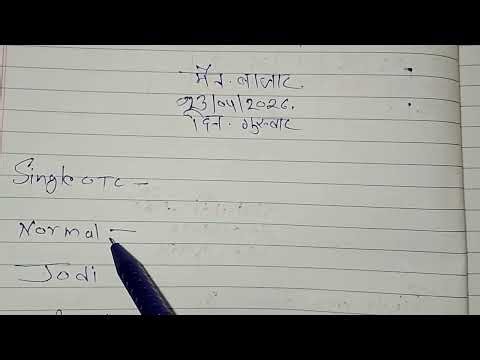 मेन बाजार
23/04/2026.
दिन. गुरुवार
Single OTC -
Normal -
Jodi